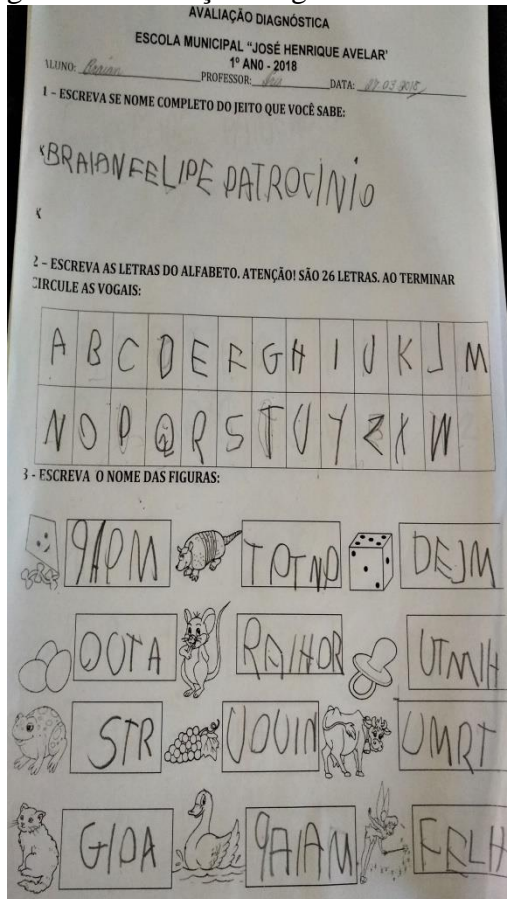 AVALIAÇÃO DIAGNÓSTICA
ESCOLA MUNICIPAL "JOSÉ HENRIQUE AVELAR'
1º ANO - 2018
ALUNO: Braian PROFESSOR: DATA: 07.03.2018
1 – ESCREVA SE NOME COMPLETO DO JEITO QUE VOCÊ SABE:
BRAIANFELIPE PATROCINIO
2 – ESCREVA AS LETRAS DO ALFABETO. ATENÇÃO! SÃO 26 LETRAS. AO TERMINAR
CIRCULE AS VOGAIS:
A B C D E F G H I J K J M
N O P Q R S T U Y Z X W
3 - ESCREVA O NOME DAS FIGURAS:
9APM TPTNP DEJM
OUTA RAIHOR UTMIH
STR UOUIN UMRT
GIPA 9AIAM FELH